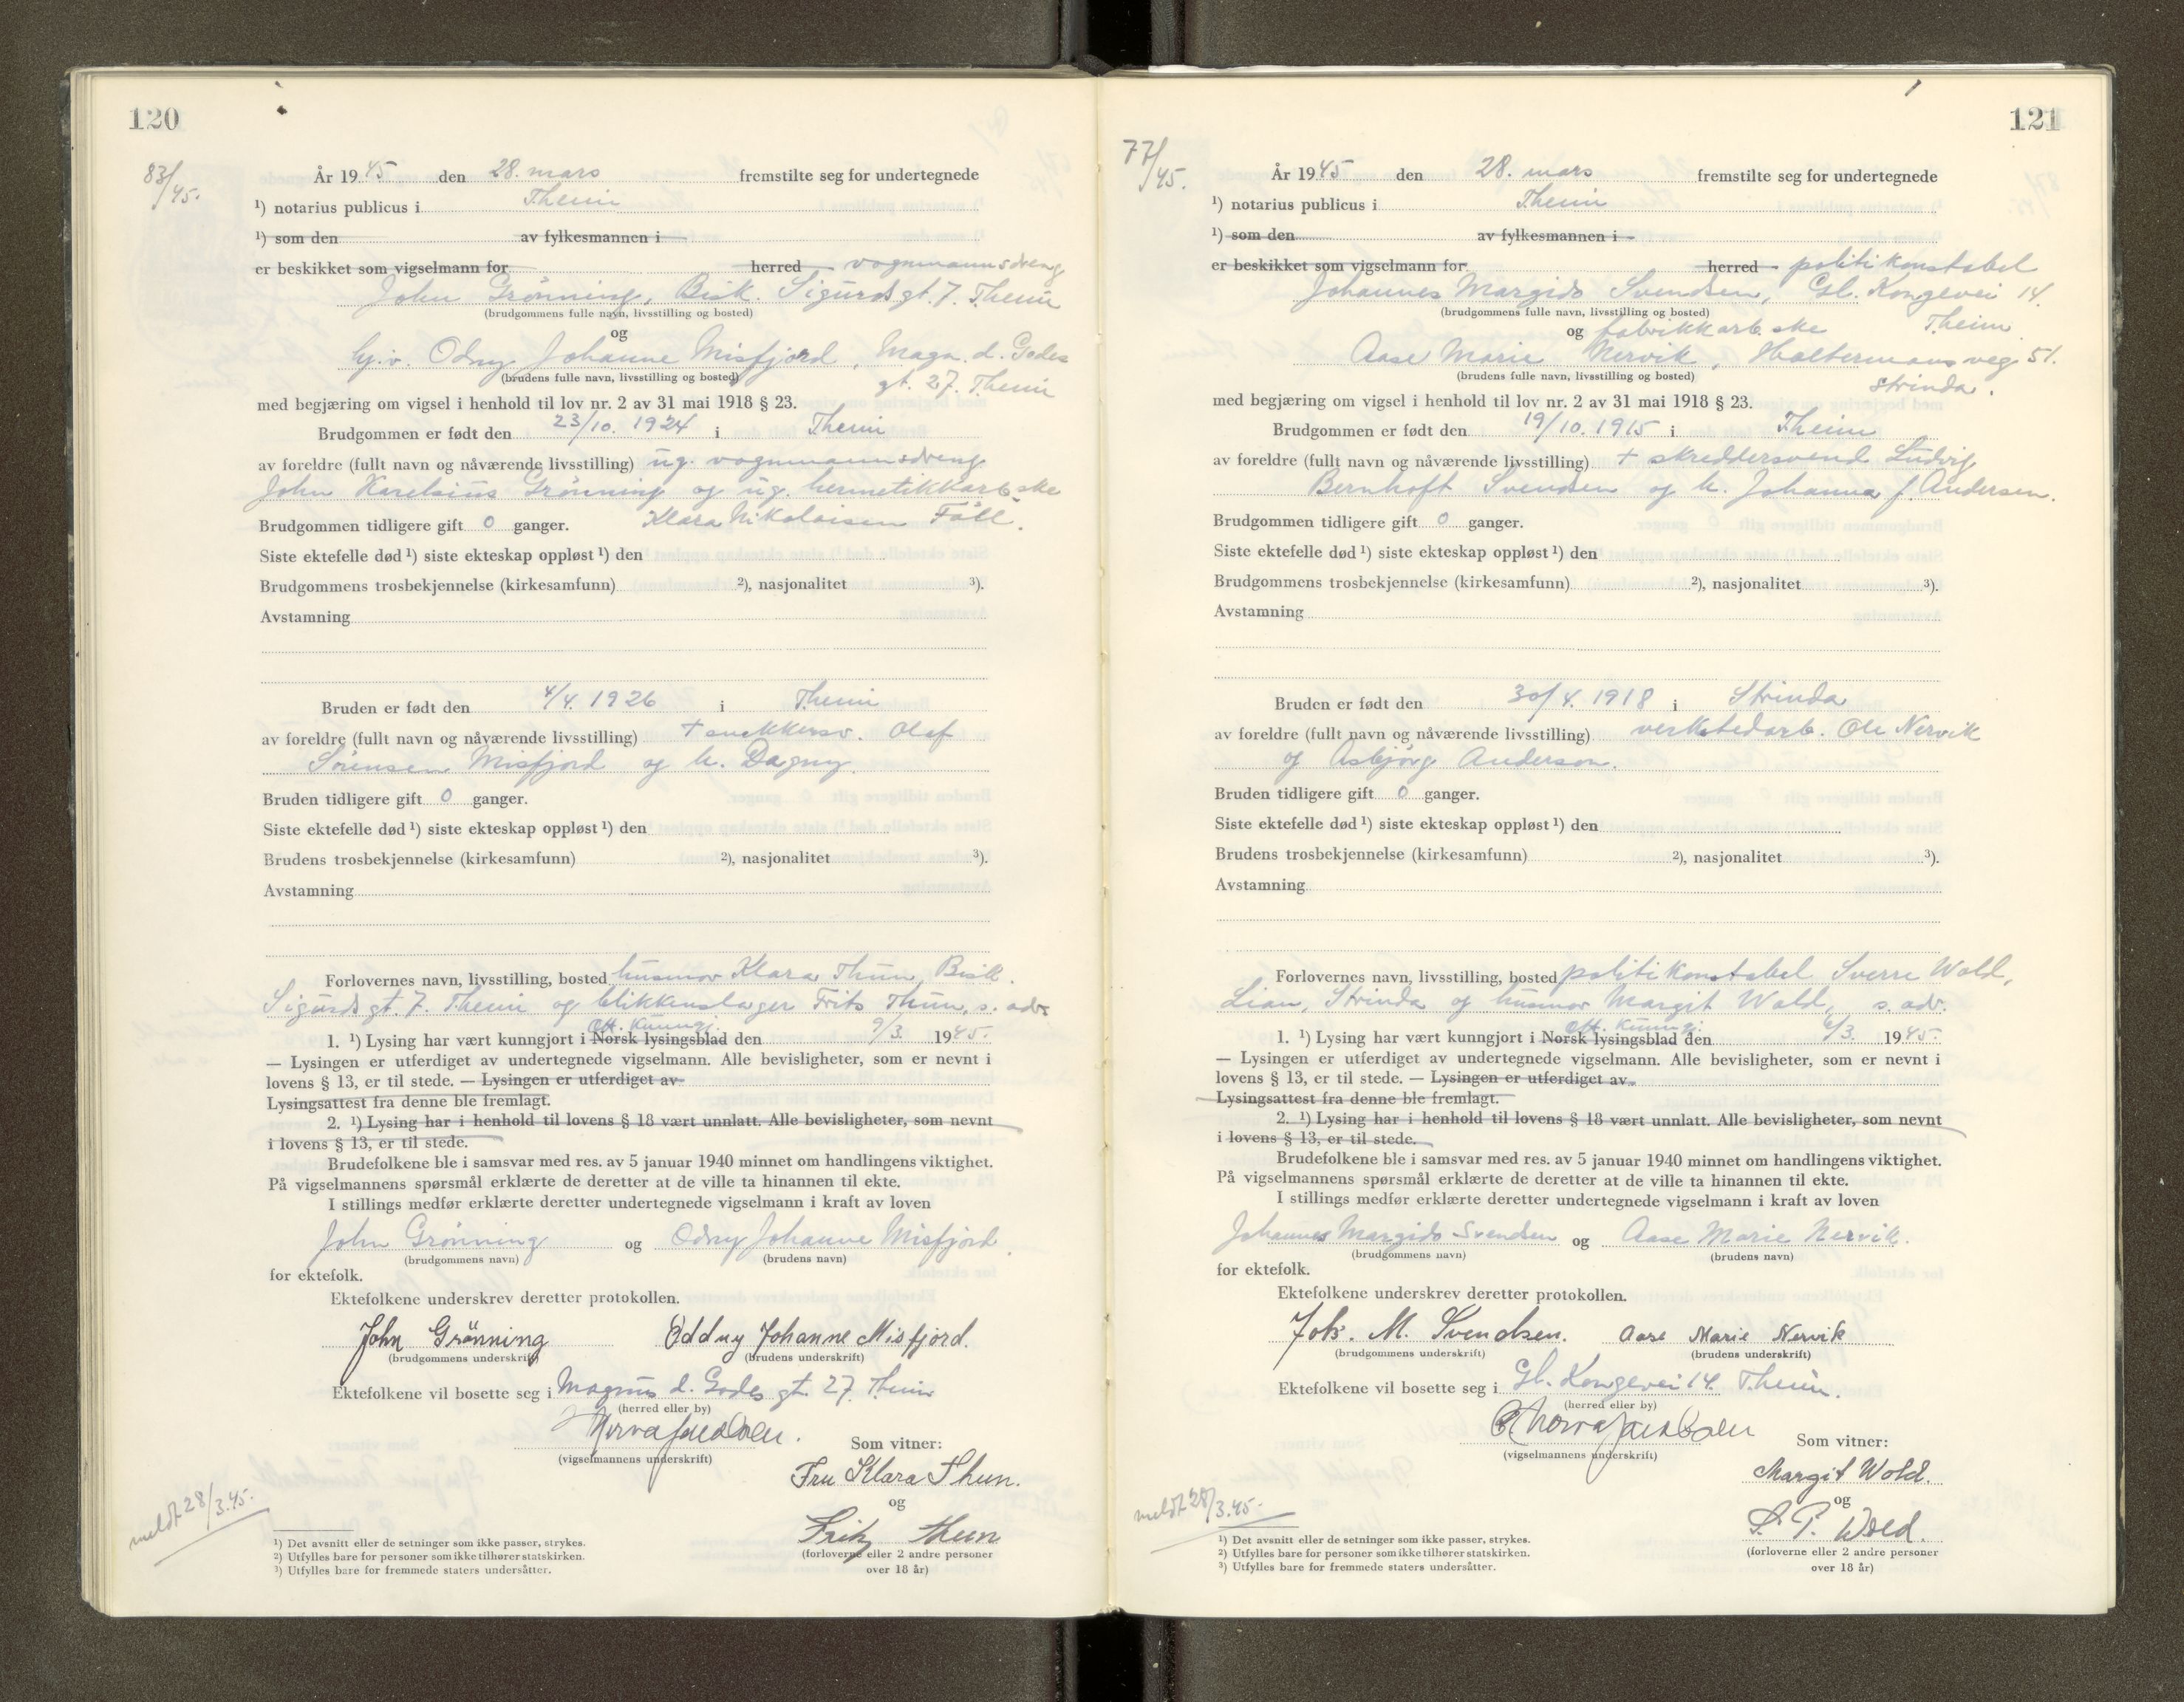 120
83/45.
År 1945 den 28. mars fremstilte seg for undertegnede
¹) notarius publicus i Theim
¹) som den av fylkesmannen i
er beskikket som vigselmann for herred vognmannsdreng
John Grönning, Bisk. Sigurds gt. 7. Theim
(brudgommens fulle navn, livsstilling og bosted)
og
hj.v. Odny Johanne Misfjord, Magn. d. Godes
(brudens fulle navn, livsstilling og bosted)
gt. 27. Theim
med begjæring om vigsel i henhold til lov nr. 2 av 31 mai 1918 § 23.
Brudgommen er født den 23/10. 1924 i Theim
av foreldre (fullt navn og nåværende livsstilling) ug. vognmannsdreng
John Karelsius Grönning og ug. hermetikkarb.ske
Brudgommen tidligere gift 0 ganger. Klara Nikolaisen Fåll.
Siste ektefelle død ¹) siste ekteskap oppløst ¹) den
Brudgommens trosbekjennelse (kirkesamfunn) ²), nasjonalitet ³).
Avstamning
Bruden er født den 4/4. 1926 i Theim
av foreldre (fullt navn og nåværende livsstilling) + snekkersv. Olaf
Sörensen Misfjord og h. Dagny.
Bruden tidligere gift 0 ganger.
Siste ektefelle død ¹) siste ekteskap oppløst ¹) den
Brudens trosbekjennelse (kirkesamfunn) ²), nasjonalitet ³).
Avstamning
Forlovernes navn, livsstilling, bosted husmor Klara Thun, Bisk.
Sigurds gt. 7. Theim og blikkenslager Frits Thun, s. adr.
Off. Kunngj.
1. ¹) Lysing har vært kunngjort i Norsk lysingsblad den 9/3. 1945.
— Lysingen er utferdiget av undertegnede vigselmann. Alle bevisligheter, som er nevnt i
lovens § 13, er til stede. — Lysingen er utferdiget av
Lysingsattest fra denne ble fremlagt.
2. ¹) Lysing har i henhold til lovens § 18 vært unnlatt. Alle bevisligheter, som nevnt
i lovens § 13, er til stede.
Brudefolkene ble i samsvar med res. av 5 januar 1940 minnet om handlingens viktighet.
På vigselmannens spørsmål erklærte de deretter at de ville ta hinannen til ekte.
I stillings medfør erklærte deretter undertegnede vigselmann i kraft av loven
John Grönning og Odny Johanne Misfjord.
(brudgommens navn) (brudens navn)
for ektefolk.
Ektefolkene underskrev deretter protokollen.
John Grönning Oddny Johanne Misfjord.
(brudgommens underskrift) (brudens underskrift)
Ektefolkene vil bosette seg i Magnus d. Godes gt. 27. Theim
(herred eller by)
(vigselmannens underskrift)
Som vitner:
Fru Klara Thun.
og
Fritz Thun
(forloverne eller 2 andre personer
over 18 år)
meldt 28/3.45.
¹) Det avsnitt eller de setninger som ikke passer, strykes.
²) Utfylles bare for personer som ikke tilhører statskirken.
³) Utfylles bare for fremmede staters undersåtter.
121
77/45.
År 1945 den 28. mars fremstilte seg for undertegnede
¹) notarius publicus i Theim
¹) som den av fylkesmannen i
er beskikket som vigselmann for herred politikonstabel
Johannes Margido Svendsen, Gl. Kongevei 14.
(brudgommens fulle navn, livsstilling og bosted)
og fabrikkarb.ske Theim
Aase Marie Nervik, Haltermans veg 51.
(brudens fulle navn, livsstilling og bosted)
Strinda.
med begjæring om vigsel i henhold til lov nr. 2 av 31 mai 1918 § 23.
Brudgommen er født den 19/10. 1915 i Theim
av foreldre (fullt navn og nåværende livsstilling) + skreddersvend Ludvig
Bernhoft Svendsen og h. Johanna f. Andersen.
Brudgommen tidligere gift 0 ganger.
Siste ektefelle død ¹) siste ekteskap oppløst ¹) den
Brudgommens trosbekjennelse (kirkesamfunn) ²), nasjonalitet ³).
Avstamning
Bruden er født den 30/4. 1918 i Strinda
av foreldre (fullt navn og nåværende livsstilling) verkstedarb. Ole Nervik
og Asbjörg Anderson.
Bruden tidligere gift 0 ganger.
Siste ektefelle død ¹) siste ekteskap oppløst ¹) den
Brudens trosbekjennelse (kirkesamfunn) ²), nasjonalitet ³).
Avstamning
Forlovernes navn, livsstilling, bosted politikonstabel Sverre Wold,
Lian, Strinda og husmor Margit Wold, s. adr.
Off. Kunngj.
1. ¹) Lysing har vært kunngjort i Norsk lysingsblad den 6/3. 1945.
— Lysingen er utferdiget av undertegnede vigselmann. Alle bevisligheter, som er nevnt i
lovens § 13, er til stede. — Lysingen er utferdiget av
Lysingsattest fra denne ble fremlagt.
2. ¹) Lysing har i henhold til lovens § 18 vært unnlatt. Alle bevisligheter, som nevnt
i lovens § 13, er til stede.
Brudefolkene ble i samsvar med res. av 5 januar 1940 minnet om handlingens viktighet.
På vigselmannens spørsmål erklærte de deretter at de ville ta hinannen til ekte.
I stillings medfør erklærte deretter undertegnede vigselmann i kraft av loven
Johannes Margido Svendsen og Aase Marie Nervik.
(brudgommens navn) (brudens navn)
for ektefolk.
Ektefolkene underskrev deretter protokollen.
Johs. M. Svendsen. Aase Marie Nervik
(brudgommens underskrift) (brudens underskrift)
Ektefolkene vil bosette seg i Gl. Kongevei 14. Theim.
(herred eller by)
(vigselmannens underskrift)
Som vitner:
Margit Wold.
og
S. P. Wold.
(forloverne eller 2 andre personer
over 18 år)
meldt 28/3.45.
¹) Det avsnitt eller de setninger som ikke passer, strykes.
²) Utfylles bare for personer som ikke tilhører statskirken.
³) Utfylles bare for fremmede staters undersåtter.